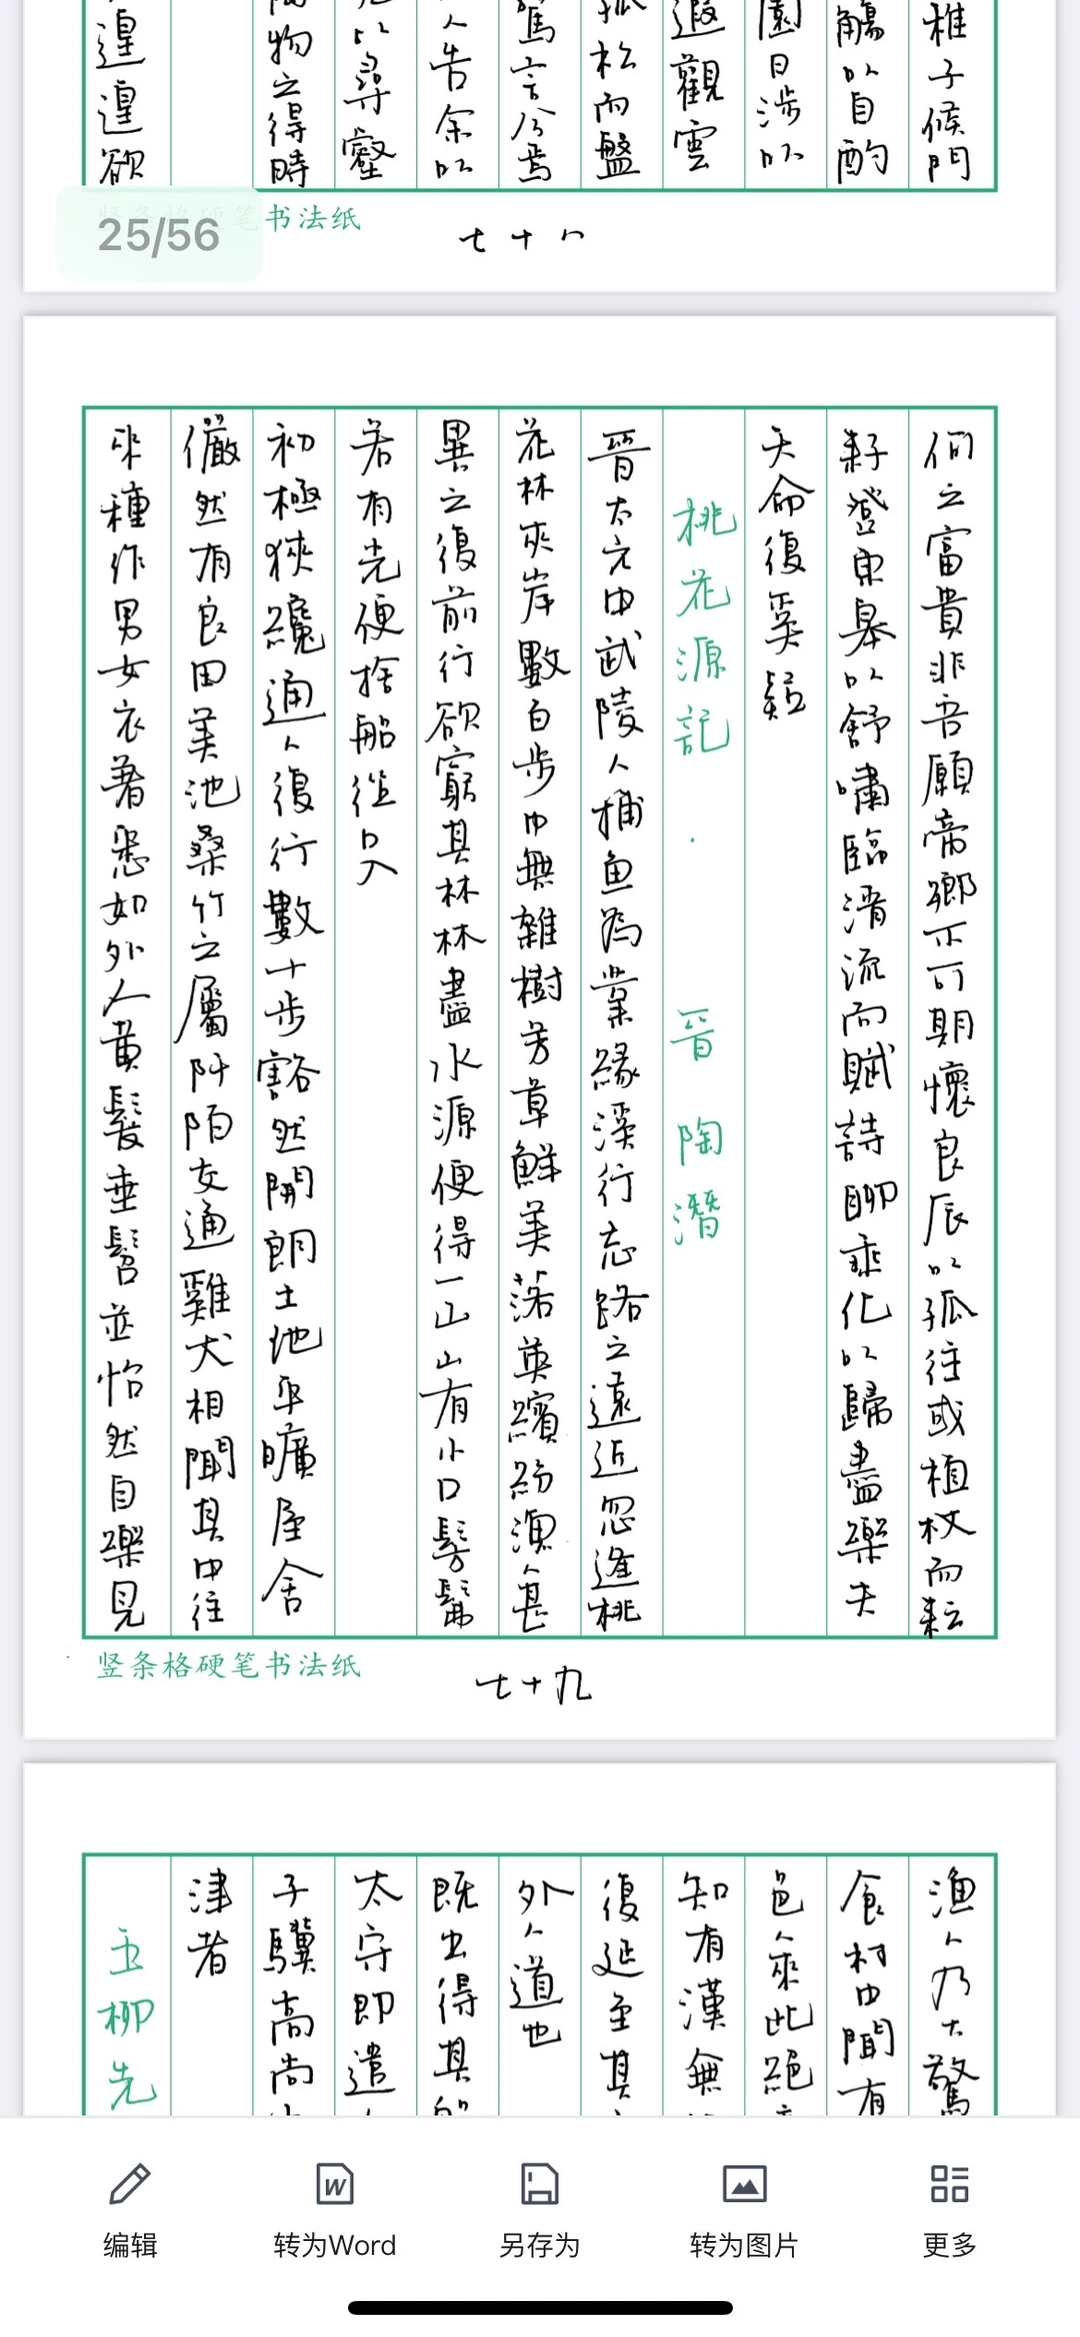 稚子候門
觴以自酌
園日涉以
遐觀雲
孤松而盤
駕言兮焉
人告余以
以尋壑
物之得時
遑遑欲
竖条格硬笔书法纸
25/56
七十八
何之富貴非吾願帝鄉不可期懷良辰以孤往或植杖而耘
耔登東皋以舒嘯臨清流而賦詩聊乘化以歸盡樂夫
天命復奚疑
桃花源記 晉 陶潛
晉太元中武陵人捕魚為業緣溪行忘路之遠近忽逢桃
花林夾岸數百步中無雜樹芳草鮮美落英繽紛漁人甚
異之復前行欲窮其林林盡水源便得一山山有小口髣髴
若有光便捨船從口入
初極狹纔通人復行數十步豁然開朗土地平曠屋舍
儼然有良田美池桑竹之屬阡陌交通雞犬相聞其中往
來種作男女衣著悉如外人黃髮垂髫並怡然自樂見
竖条格硬笔书法纸
七十九
漁人乃大驚
食村中聞有
邑人來此絕
知有漢無
復延至其
外人道也
既出得其船
太守即遣人
子驥高尚
津者
五柳先
编辑
转为Word
另存为
转为图片
更多